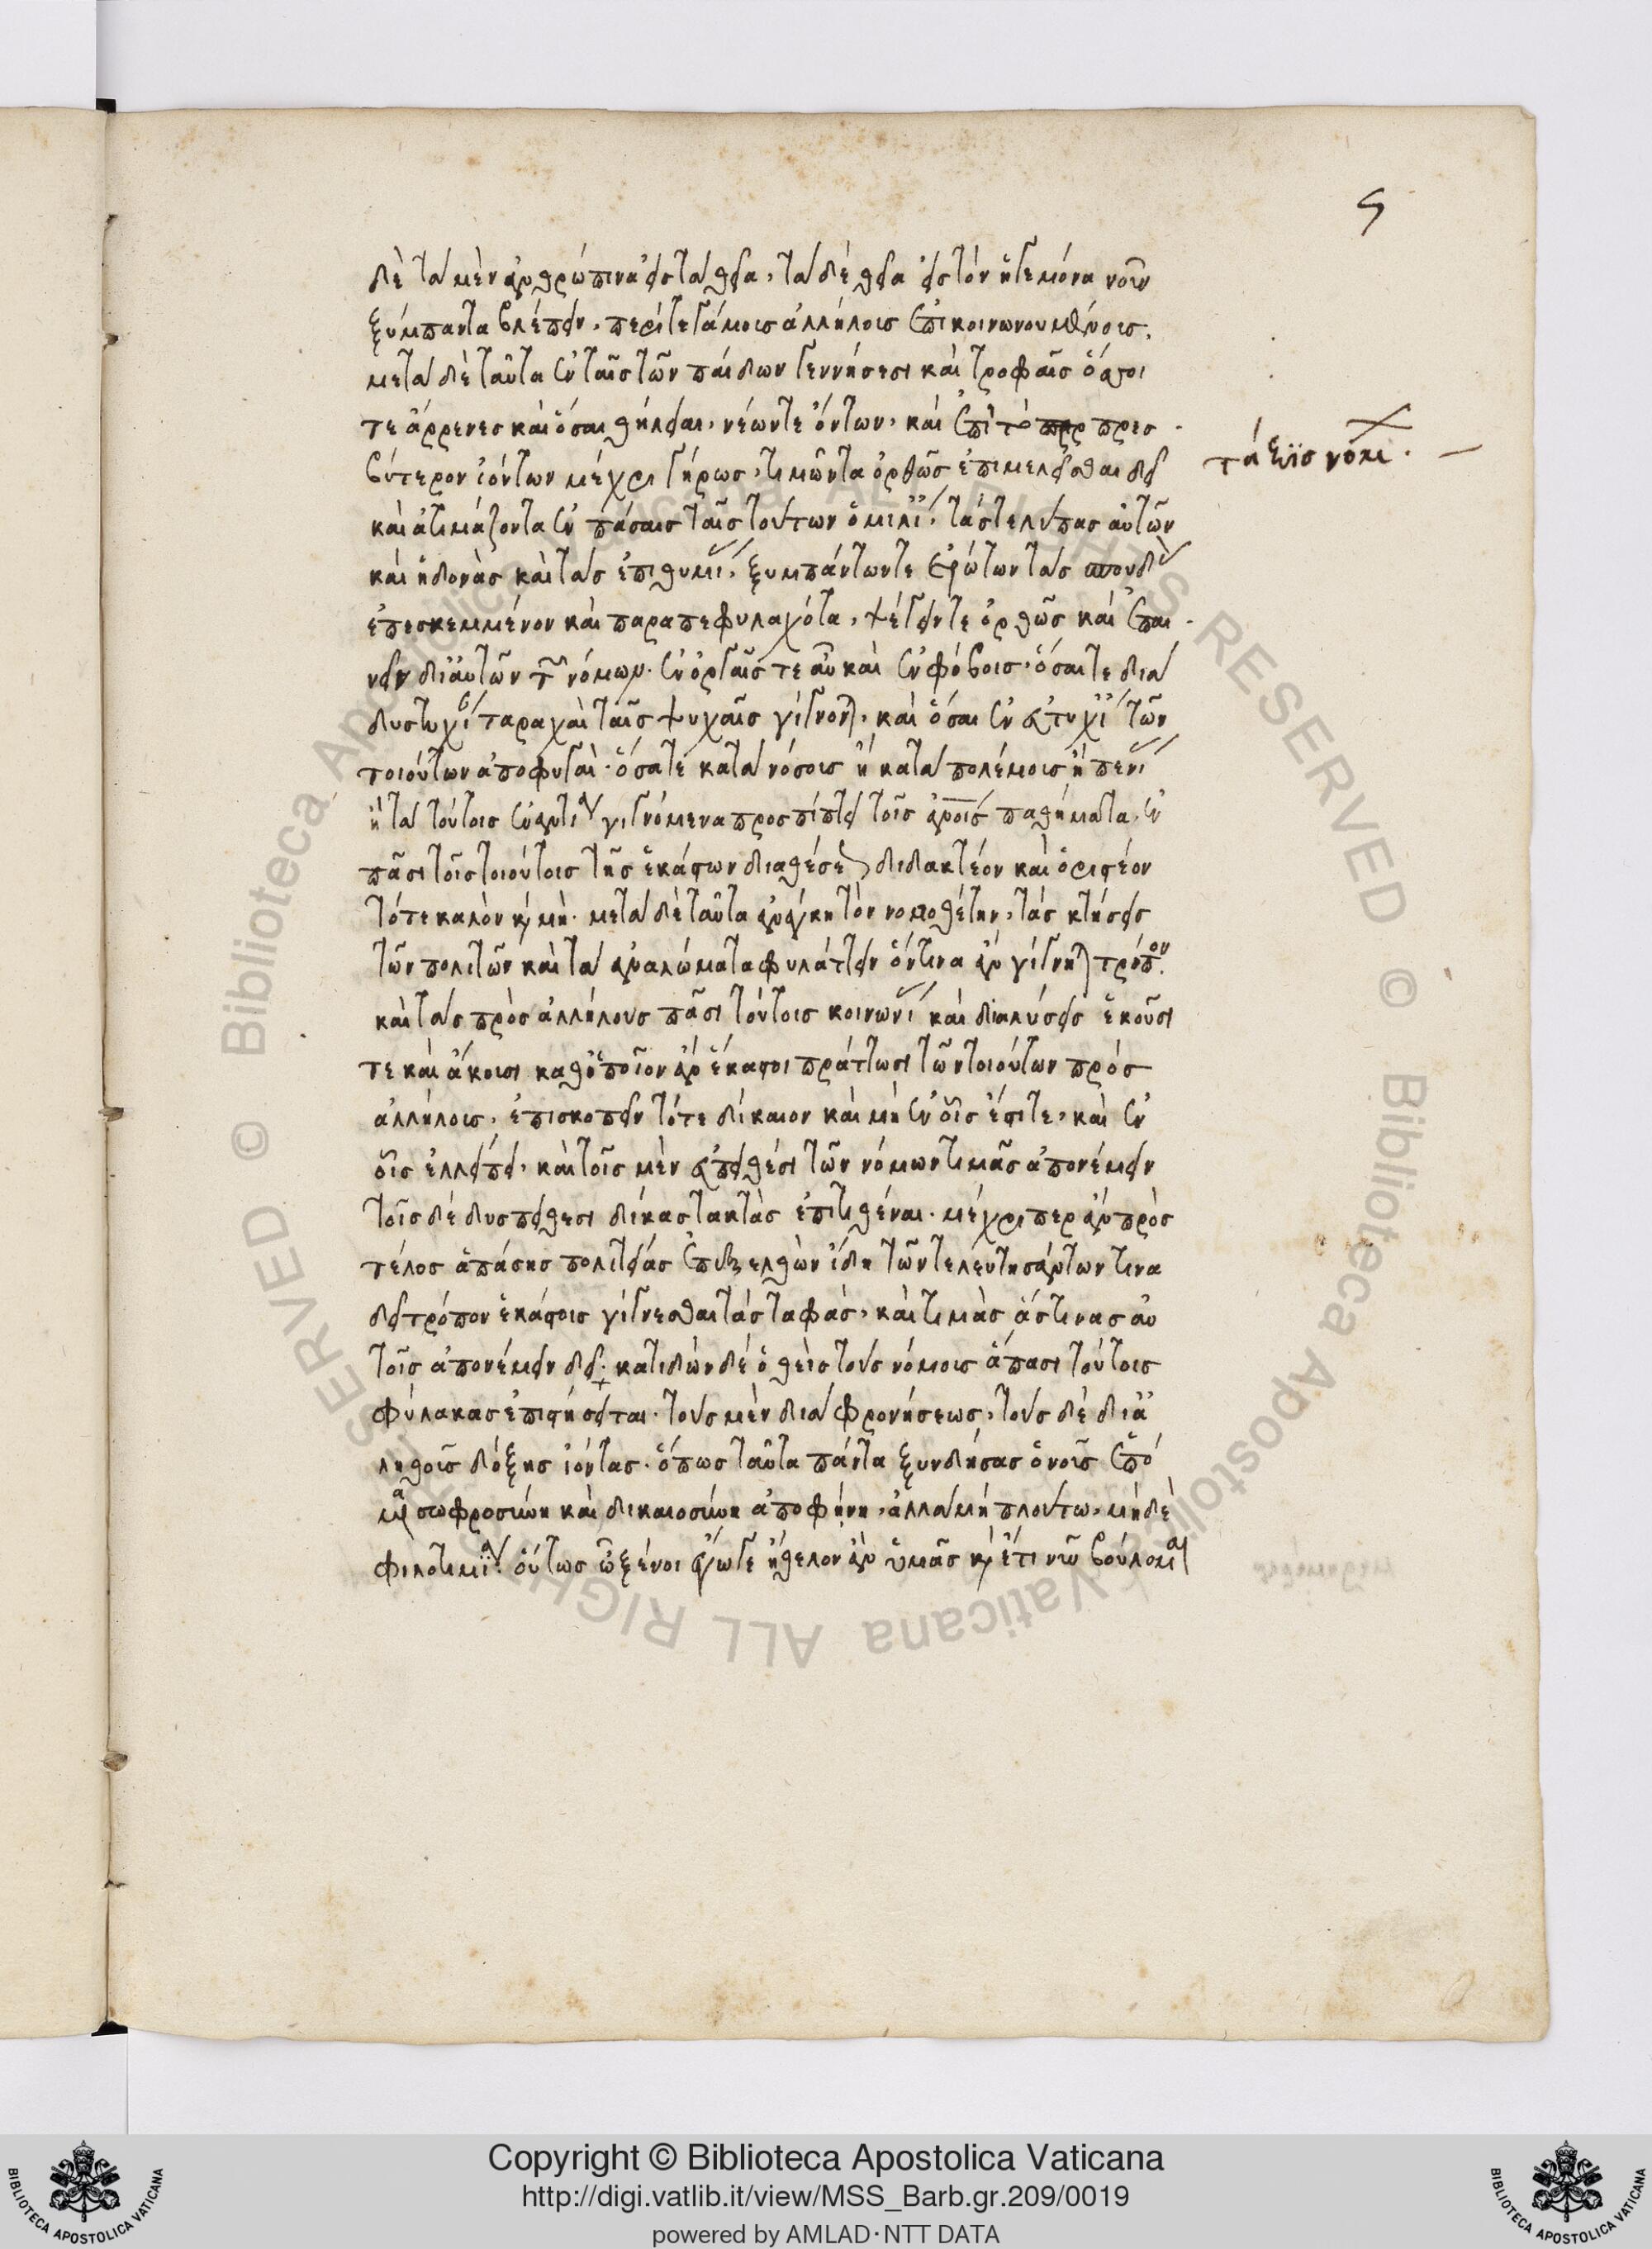 5
δὲ τὰ μὲν ἀνθρώπινα εἰς τὰ θεῖα, τὰ δὲ θεῖα εἰς τὸν ἡγεμόνα νοῦν
ξύμπαντα βλέπειν. περί τε γάμους ἀλλήλοις ἐπικοινωνουμένους,
μετὰ δὲ ταῦτα ἐν ταῖς τῶν παίδων γεννήσεσι καὶ τροφαῖς ὅσοι
τε ἄρρενες καὶ ὅσαι θήλειαι, νέων τε ὄντων, καὶ ἐπὶ τὸ πρεσ
βύτερον ἰόντων μέχρι γήρως, τιμῶντα ὀρθῶς ἐπιμελεῖσθαι δεῖ
τάξις νόμ.
καὶ ἀτιμάζοντα ἐν πάσαις ταῖς τούτων ὁμιλί, τάς τε λύπας αὐτῶν
καὶ ἡδονὰς καὶ τὰς ἐπιθυμί, ξυμπάντων τε ἐρώτων τὰς σπουδὰς
ἐπεσκεμμένον καὶ παραπεφυλαχότα, ψέγειν τε ὀρθῶς καὶ ἐπαι
νεῖν δι' αὐτῶν τῶν νόμων. ἐν ὀργαῖς τε αὖ καὶ ἐν φόβοις, ὅσαι τε διὰ
δυστυχί ταραχαὶ ταῖς ψυχαῖς γίγνονται, καὶ ὅσαι ἐν εὐτυχί τῶν
τοιούτων ἀποφυγαὶ. ὅσα τε κατὰ νόσους ἢ κατὰ πολέμους ἢ πενί
ἢ τὰ τούτοις ἐναντία γιγνόμενα προσπίπτει τοῖς ἀνοις παθήματα, ἐν
πᾶσι τοῖς τοιούτοις τῆς ἑκάστων διαθέσεως διδακτέον καὶ ὁριστέον
τό τε καλὸν καὶ μὴ. μετὰ δὲ ταῦτα ἀνάγκη τὸν νομοθέτην, τὰς κτήσεις
τῶν πολιτῶν καὶ τὰ ἀναλώματα φυλάττειν ὅντινα ἂν γίγνηται τρόπον.
καὶ τὰς πρὸς ἀλλήλους πᾶσι τούτοις κοινωνί καὶ διαλύσεις ἑκοῦσι
τε καὶ ἄκουσι καθ' ὁποῖον ἂν ἕκαστοι πράττωσι τῶν τοιούτων πρὸς
ἀλλήλους, ἐπισκοπεῖν τό τε δίκαιον καὶ μὴ ἐν οἷς ἔστι τε, καὶ ἐν
οἷς ἐλλείπει, καὶ τοῖς μὲν εὐπειθέσι τῶν νόμων τιμὰς ἀπονέμειν
τοῖς δὲ δυσπειθέσι δίκας τακτὰς ἐπιτιθέναι. μέχρι περ ἂν πρὸς
τέλος ἁπάσης πολιτείας ἐπεξελθὼν ἴδῃ τῶν τελευτησάντων τίνα
δεῖ τρόπον ἑκάστοις γίγνεσθαι τὰς ταφάς, καὶ τιμὰς ἅστινας αὐ
τοῖς ἀπονέμειν δεῖ. κατιδὼν δὲ ὁ θεὶς τοὺς νόμους ἅπασι τούτοις
φύλακας ἐπιστήσεται. τοὺς μὲν διὰ φρονήσεως, τοὺς δὲ δι' ἀ
ληθοῦς δόξης ἰόντας. ὅπως ταῦτα πάντα ξυνδήσας ὁ νοῦς ἑπό
μενα σωφροσύνῃ καὶ δικαιοσύνῃ ἀποφήνῃ, ἀλλὰ μὴ πλούτῳ, μηδὲ
φιλοτιμίᾳ. οὕτως ὦ ξένοι ἔγωγε ἤθελον ἂν ὑμᾶς καὶ ἔτι νῦν βούλομαι
Copyright © Biblioteca Apostolica Vaticana
http://digi.vatlib.it/view/MSS_Barb.gr.209/0019
powered by AMLAD·NTT DATA